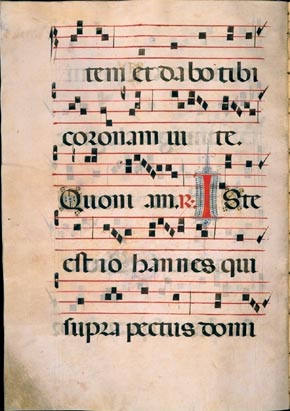 tem et dabo tibi
coronam uite.
Quoni am. R. Iste
est io hannes qui
supra pectus domi